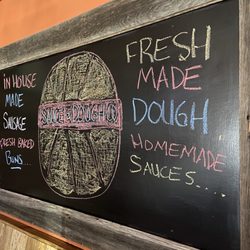 IN HOUSE
MADE
FRESH BAKED
BUNS...
SAUCE & DOUGH CO
FRESH
MADE
DOUGH
HOMEMADE
SAUCES....